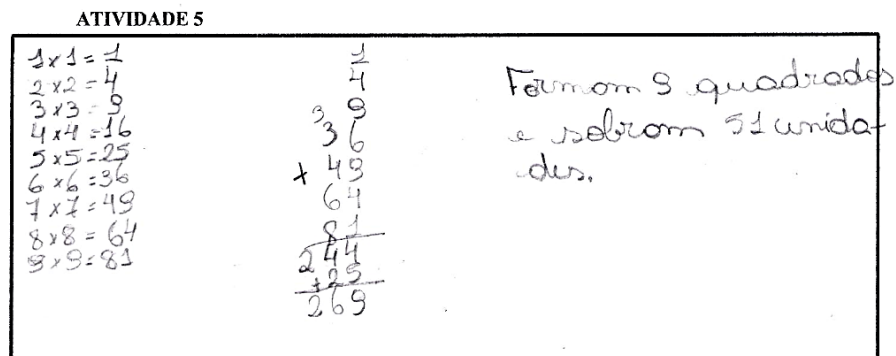 ATIVIDADE 5
1x1=1
2x2=4
3x3=9
4x4=16
5x5=25
6x6=36
7x7=49
8x8=64
9x9=81
1
4
3 9
36
+ 49
64
81
244
+25
269
Formam 9 quadrados
e sobram 51 unida-
des.